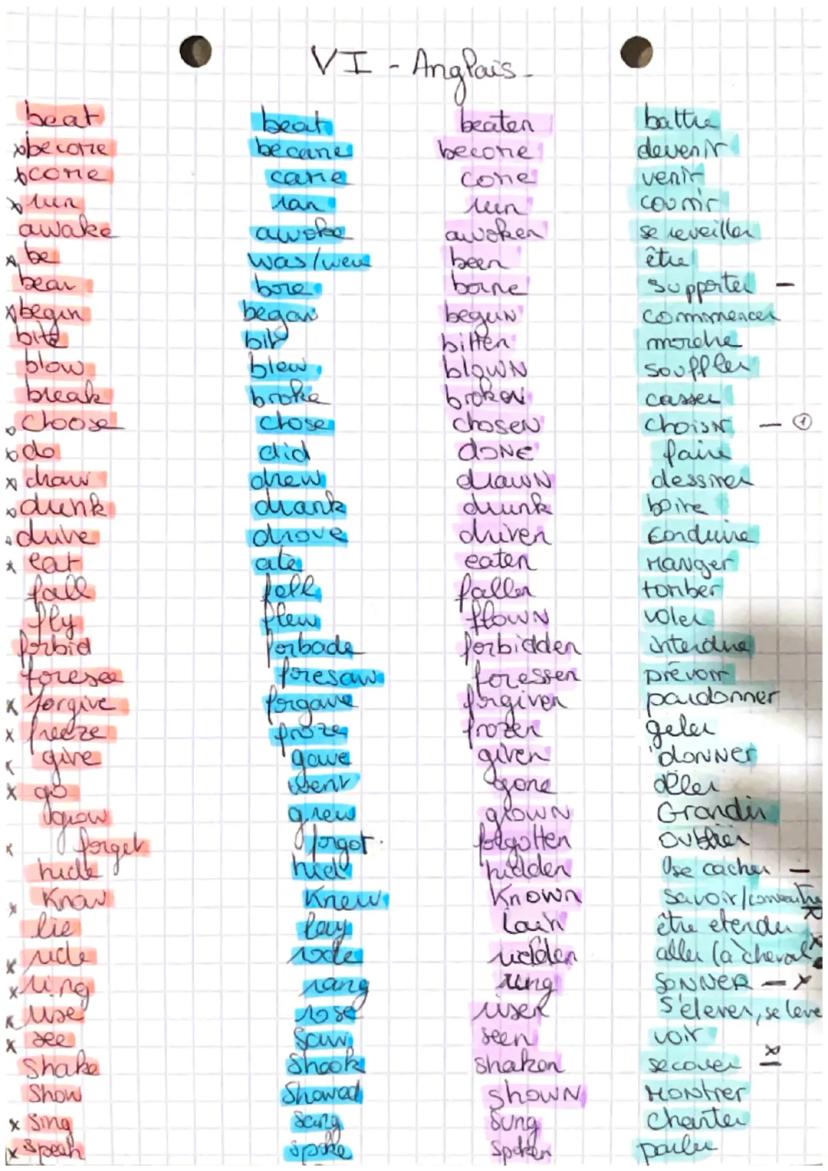 VI - Anglais
beat beat beaten battre
become became become devenir
come came come venir
run ran run courrir
awake awoke awoken se reveiller
be was/were been être
bear bore borne supporter
begin began begun commencer
bite bit bitten mordre
blow blew blown souffler
break broke broken casser
choose chose chosen choisir
do did done faire
draw drew drawn dessiner
drunk drank drunk boire
drive drove driven conduire
eat ate eaten manger
fall fell fallen tomber
fly flew flown voler
forbid forbade forbidden interdire
foresee foresaw foreseen prévoir
forgive forgave forgiven pardonner
freeze froze frozen geler
give gave given donner
go went gone aller
grow grew grown Grandir
forget forgot forgotten oublier
hide hid hidden se cacher
Know Knew Known savoir/connaître
lie lay lain être etendu
ride rode ridden aller (à cheval
ring rang rung SONNER
rise rose risen s'élever, se leve
see saw seen voir
shake shook shaken secouer
Show Showed SHOWN Montrer
Sing sang sung chanter
speak spoke spoken parler